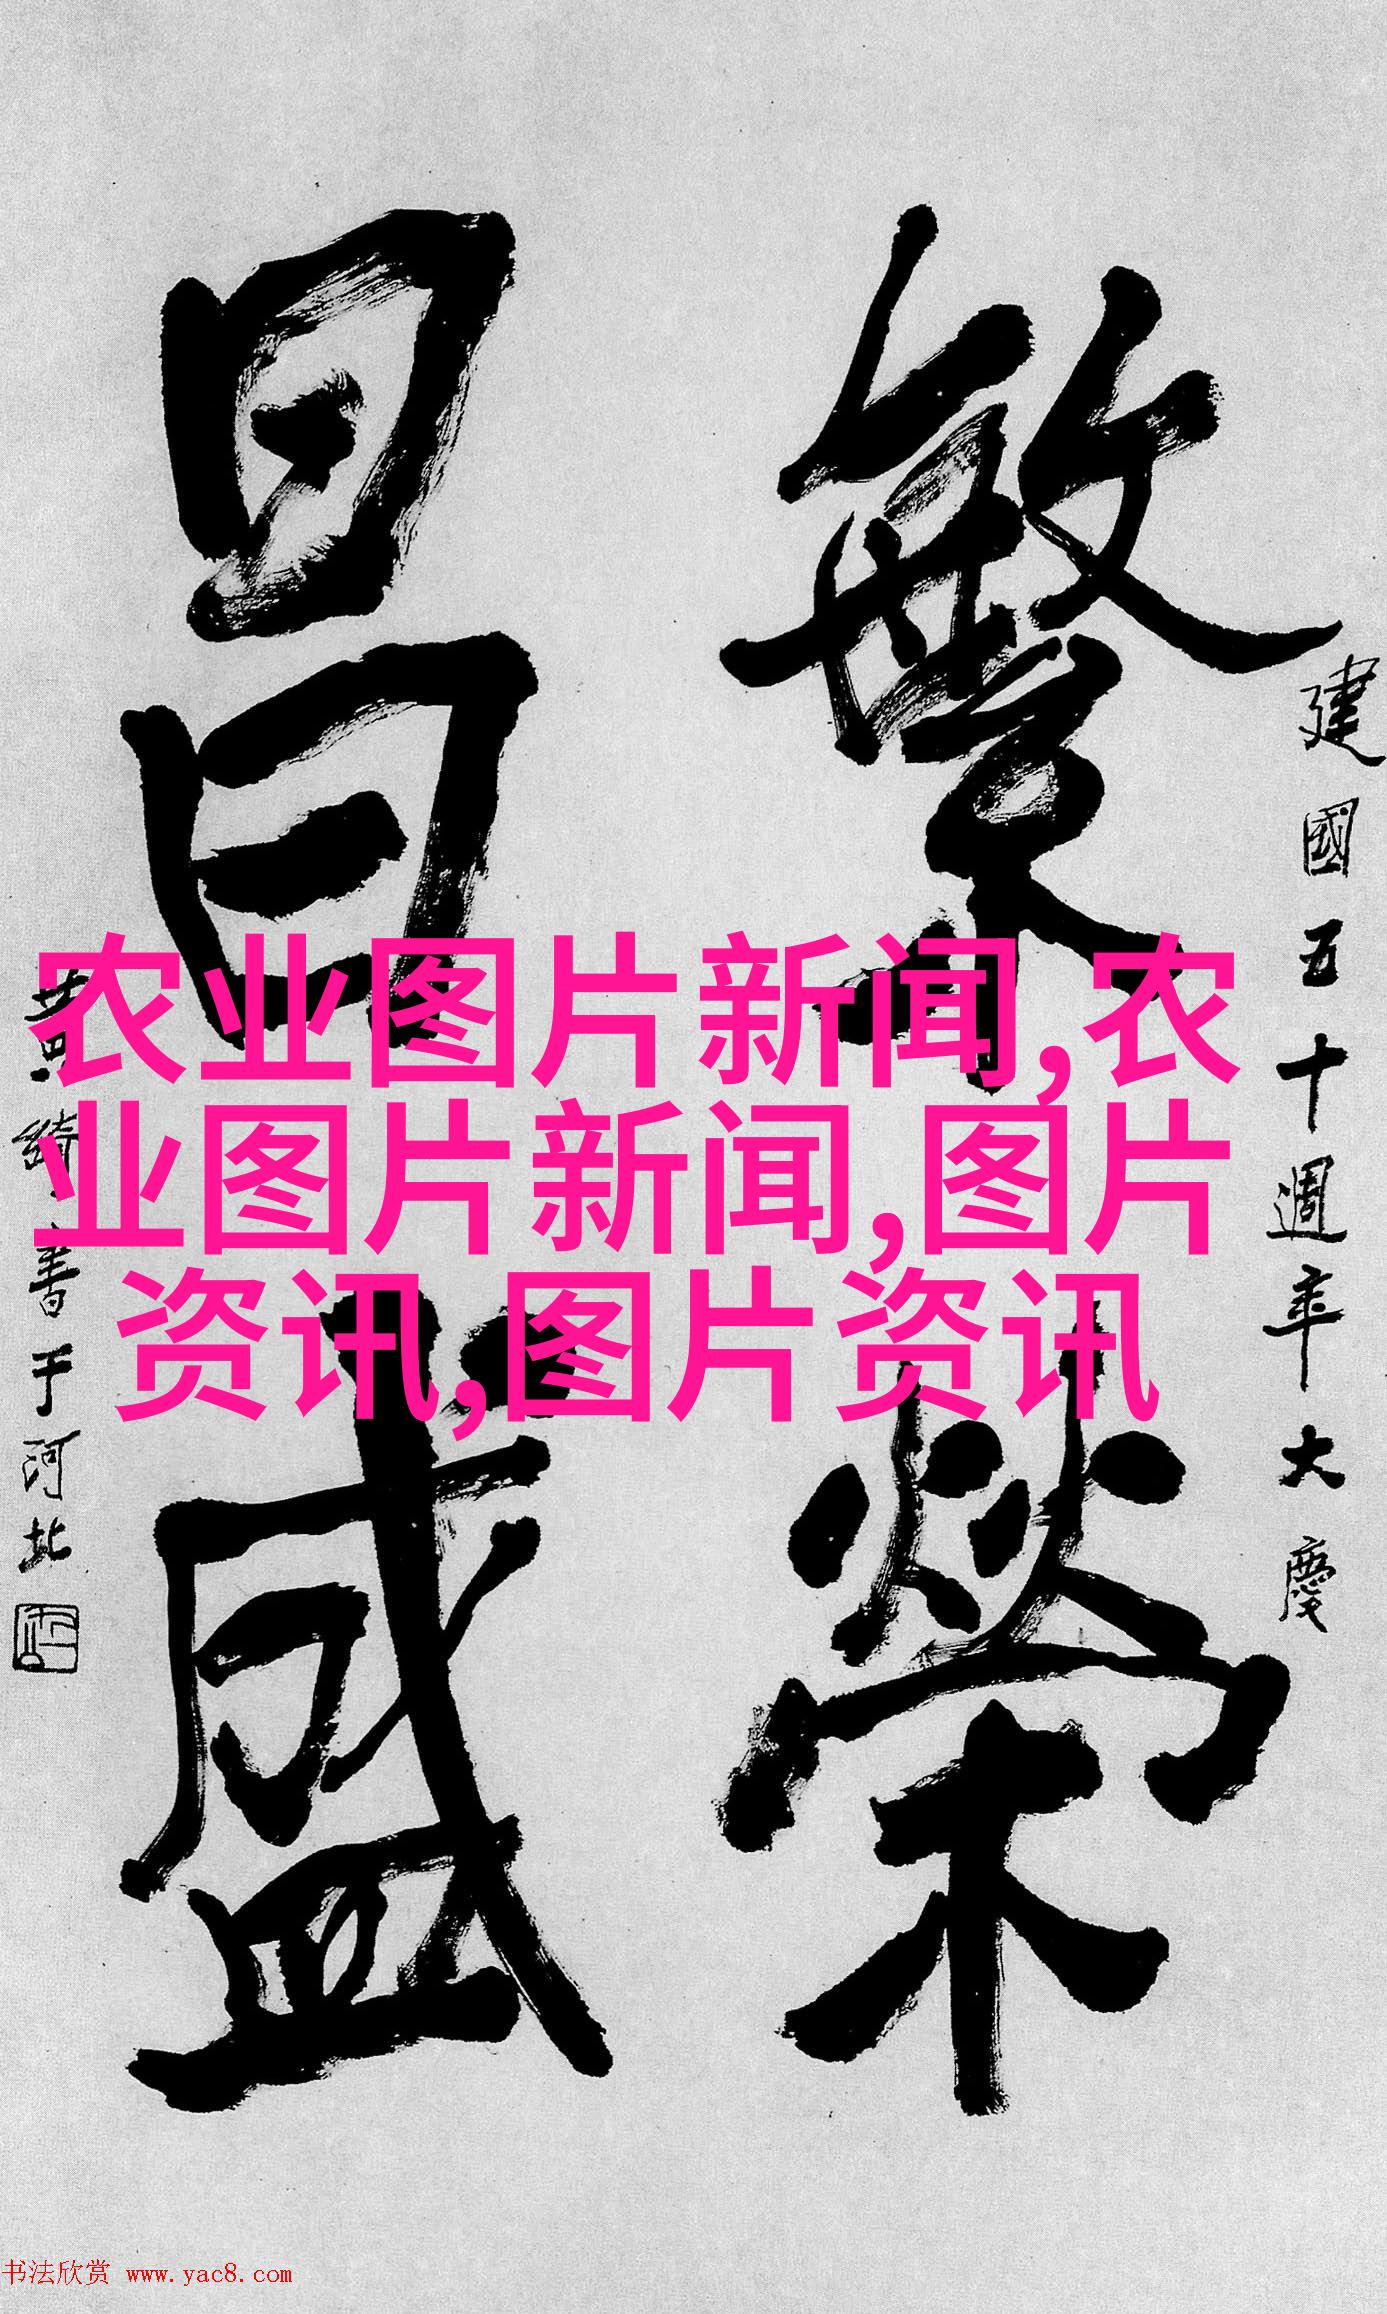 繁榮
昌盛
建國五十週年大慶
黄綺書于河北
农业图片新闻,农
业图片新闻,图片
资讯,图片资讯
书法欣赏 www.yac8.com